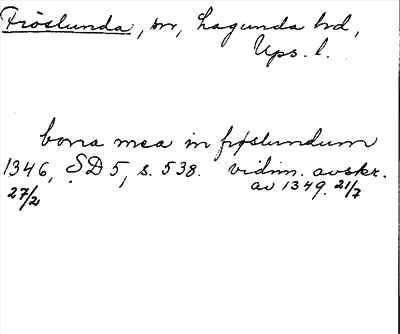 Fröslunda, sn, Lagunda hd,
Ups. l.
bona mea in frøslundum
1346, SD 5, s. 538. vidim. avskr.
27/2 av 1349. 21/7